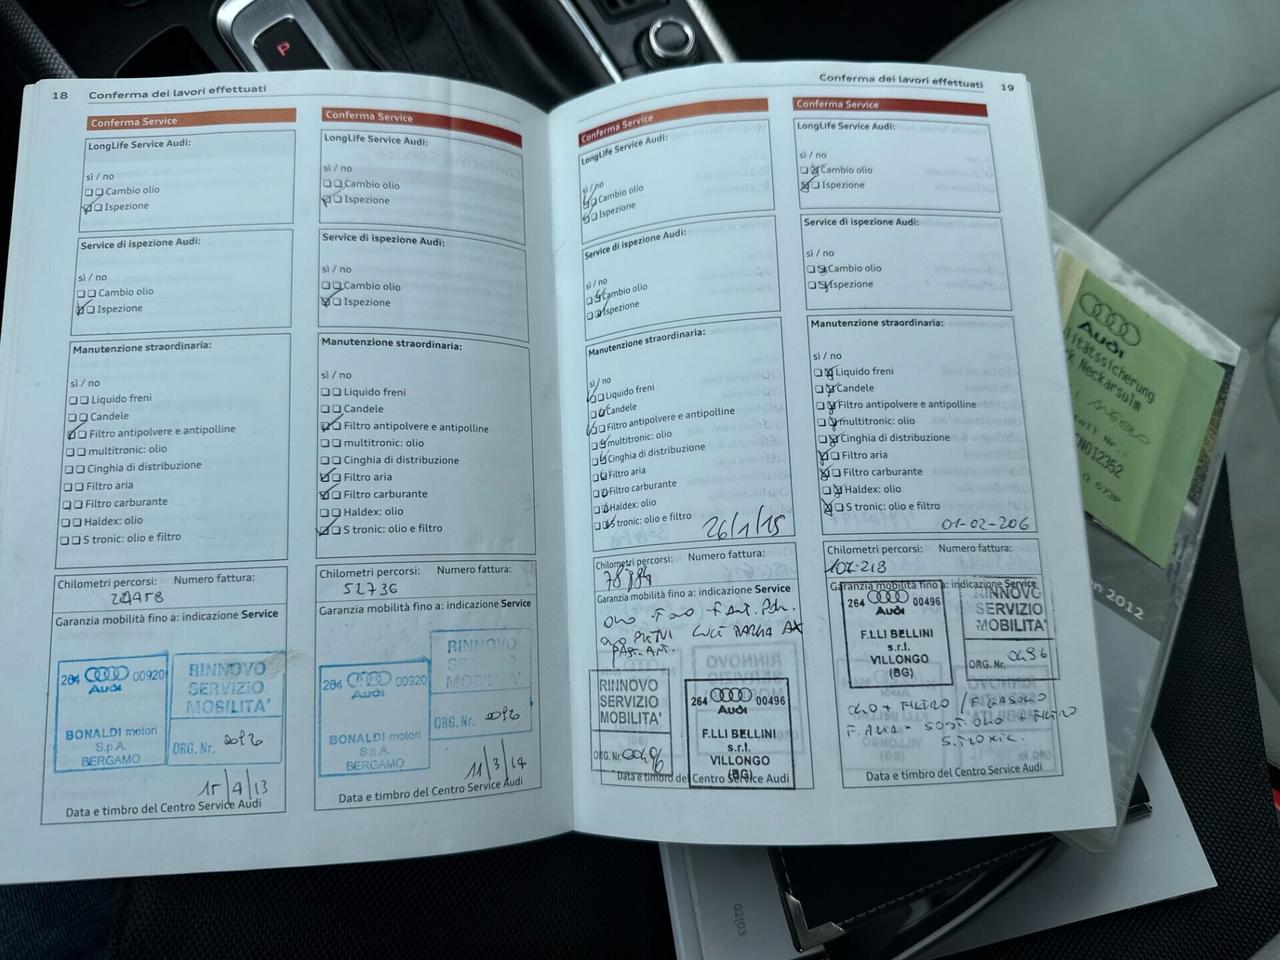 18 Conferma dei lavori effettuati
Conferma Service
LongLife Service Audi:
sì / no
Cambio olio
Ispezione
Service di ispezione Audi:
sì / no
Cambio olio
Ispezione
Manutenzione straordinaria:
sì / no
Liquido freni
Candele
Filtro antipolvere e antipolline
multitronic: olio
Cinghia di distribuzione
Filtro aria
Filtro carburante
Haldex: olio
S tronic: olio e filtro
Chilometri percorsi: Numero fattura:
Garanzia mobilità fino a: indicazione Service
264 00920
Audi
BONALDI motori
S.p.A.
BERGAMO
RINNOVO
SERVIZIO
MOBILITA'
ORG. Nr.
15/4/13
Data e timbro del Centro Service Audi
Conferma Service
LongLife Service Audi:
sì / no
Cambio olio
Ispezione
Service di ispezione Audi:
sì / no
Cambio olio
Ispezione
Manutenzione straordinaria:
sì / no
Liquido freni
Candele
Filtro antipolvere e antipolline
multitronic: olio
Cinghia di distribuzione
Filtro aria
Filtro carburante
Haldex: olio
S tronic: olio e filtro
Chilometri percorsi: Numero fattura:
52736
Garanzia mobilità fino a: indicazione Service
264 00920
Audi
BONALDI motori
S.p.A.
BERGAMO
RINNOVO
SERVIZIO
MOBILITA'
ORG. Nr.
11/3/14
Data e timbro del Centro Service Audi
Conferma dei lavori effettuati 19
Conferma Service
LongLife Service Audi:
sì / no
Cambio olio
Ispezione
Service di ispezione Audi:
sì / no
Cambio olio
Ispezione
Manutenzione straordinaria:
sì / no
Liquido freni
Candele
Filtro antipolvere e antipolline
multitronic: olio
Cinghia di distribuzione
Filtro aria
Filtro carburante
Haldex: olio
S tronic: olio e filtro
26/1/15
Chilometri percorsi: Numero fattura:
Garanzia mobilità fino a: indicazione Service
RINNOVO
SERVIZIO
MOBILITA'
ORG. Nr. 0496
264 00496
Audi
F.LLI BELLINI
s.r.l.
VILLONGO
(BG)
Data e timbro del Centro Service Audi
Conferma Service
LongLife Service Audi:
sì / no
Cambio olio
Ispezione
Service di ispezione Audi:
sì / no
Cambio olio
Ispezione
Manutenzione straordinaria:
sì / no
Liquido freni
Candele
Filtro antipolvere e antipolline
multitronic: olio
Cinghia di distribuzione
Filtro aria
Filtro carburante
Haldex: olio
S tronic: olio e filtro
01-02-206
Chilometri percorsi: Numero fattura:
102-218
Garanzia mobilità fino a: indicazione Service
264 00496
Audi
F.LLI BELLINI
s.r.l.
VILLONGO
(BG)
RINNOVO
SERVIZIO
MOBILITA'
ORG. Nr. 0496
OLIO + FILTRO / F. GASOLIO
F. ARIA - SOST. OLIO + FILTRO
S. TRONIC.
Data e timbro del Centro Service Audi
P
Audi
Neckarsulm
2012
02|03